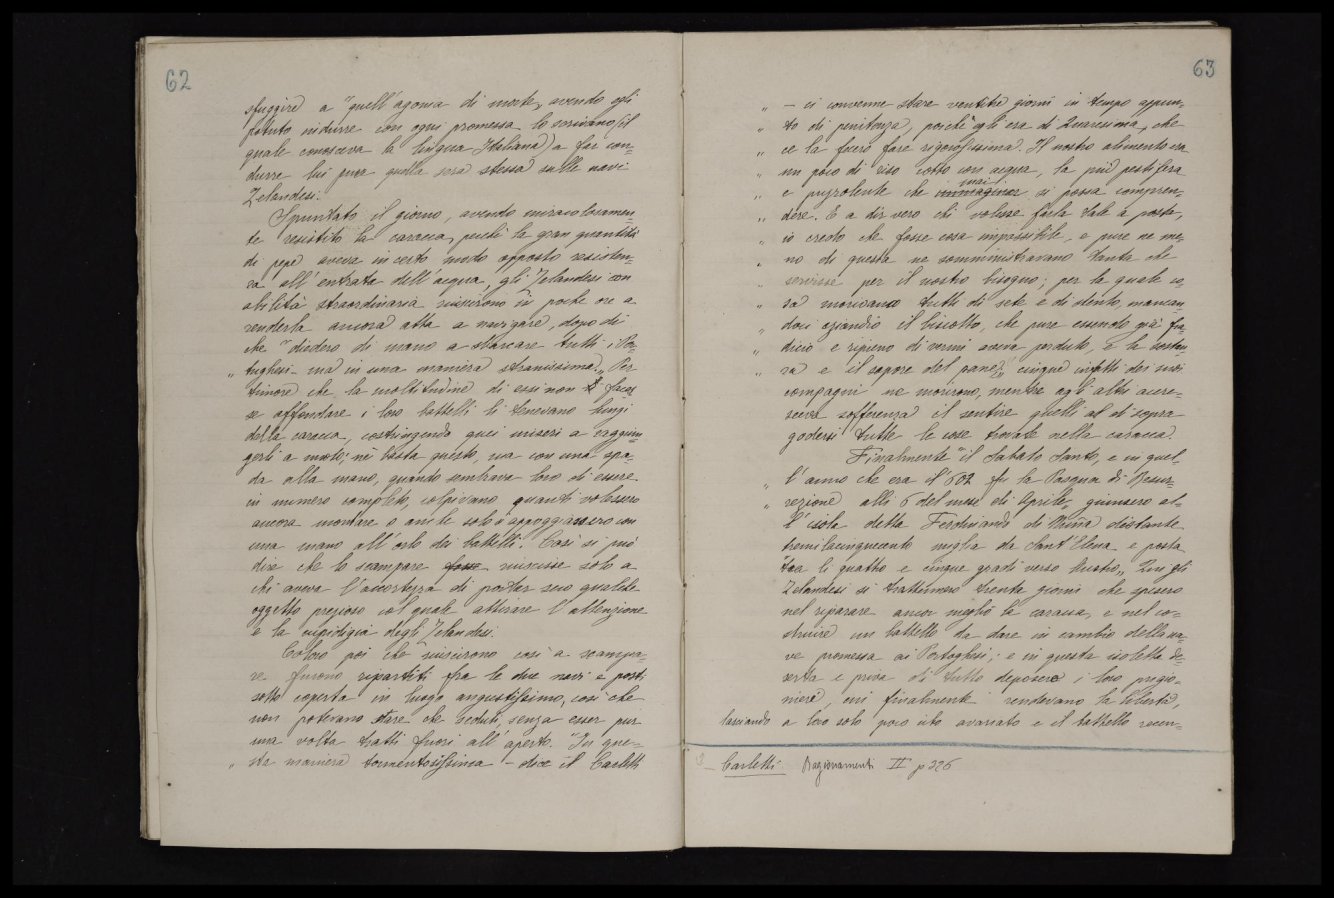 62
sfuggire a "quell'agonia di morte, avendo egli
potuto indurre con ogni promessa lo scrivano (il
quale conosceva la lingua Italiana) a far con=
durre lui pure quella sera stessa sulle navi
Zelandesi.
Spuntato il giorno, avendo miracolosamen=
te resistito la caracca, perchè la gran quantità
di pepe aveva in certo modo opposto resisten=
za all'entrata dell'acqua, gli Zelandesi con
abilità straordinaria riuscirono in poche ore a
renderla ancora atta a navigare, dopo di
che "diedero di mano a sbarcare tutti i Por=
„ tughesi - ma in una maniera stranissima„ Per
timore che la moltitudine di essi non faces
se affondare i loro battelli li tenevano lungi
della caracca, costringendo quei miseri a raggiun
gerli a nuoto; nè basta questo, ma con una spa=
da alla mano, quando sembrava loro di essere
in numero completo, colpivano quanti volessero
ancora montare o anche solo "appoggiassero con
una mano all'orlo dei battelli". Così si può
dire che lo scampare fosse riuscisse solo a
chi aveva l'accortezza di portar seco qualche
oggetto prezioso col quale attirare l'attenzione
e la cupidigia degli Zelandesi.
Coloro poi che riuscirono così a scampa=
re furono ripartiti fra le due navi e posti
sotto coperta in luogo angustissimo, così che
non potevano stare che seduti, senza esser pur
una volta tratti fuori all'aperto. "In que=
„ sta maniera tormentosissima - dice il Carletti
63
„ - ci convenne stare ventitre giorni in tempo appun=
„ to di penitenza, poichè egli era di Quaresima, che
„ ce la fecero fare rigorosissima. Il nostro alimento era
„ un poco di riso cotto con acqua, la più pestifera
mai
„ e puzzolente che immaginar si possa compren=
„ dere. E a dir vero chi volesse farla tale a posta,
„ io credo che fosse cosa impossibile, e pure ne me=
„ no di questa ne somministravano tanta che
„ servisse per il nostro bisogno; per la quale co,
„ sa morivano tutti di sete e di stento, mancan
„ doci eziandio il biscotto, che pure essendo già fra
„ dicio e ripieno di vermi aveva perduto, e la sostan
„ za e il sapore del pane„; cinque infatti dei suoi
compagni ne morirono, mentre agli altri accre=
sceva sofferenza il sentire quelli al di sopra
godersi tutte le cose trovate nella caracca.
Finalmente "il Sabato Santo, e in quel,
„ l'anno che era il 602 fu la Pasqua di Resur=
„ rezione alli 6 del mese di Aprile, giunsero al=
l'isola detta Ferdinando di Nuña distante
tremilacinquecento miglia da Sant'Elena e posta
"tra li quattro e cinque gradi verso Austro„. Qui gli
Zelandesi si trattennero trenta giorni che spesero
nel riparare ancor meglio la caracca, e nel co=
struire un battello da dare in cambio della na=
ve promessa ai Portoghesi; e in questa isoletta de=
serta e priva di tutto deposero i loro prigio=
nieri, cui finalmente rendevano la libertà,
lasciando a loro solo poco vito avariato e il battello recen=
Carletti. Ragionamenti II p 226